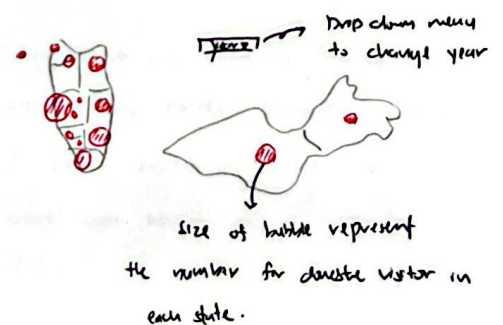 Drop down menu
years
to change year
size of bubble represent
the number for domestic visitor in
each state.